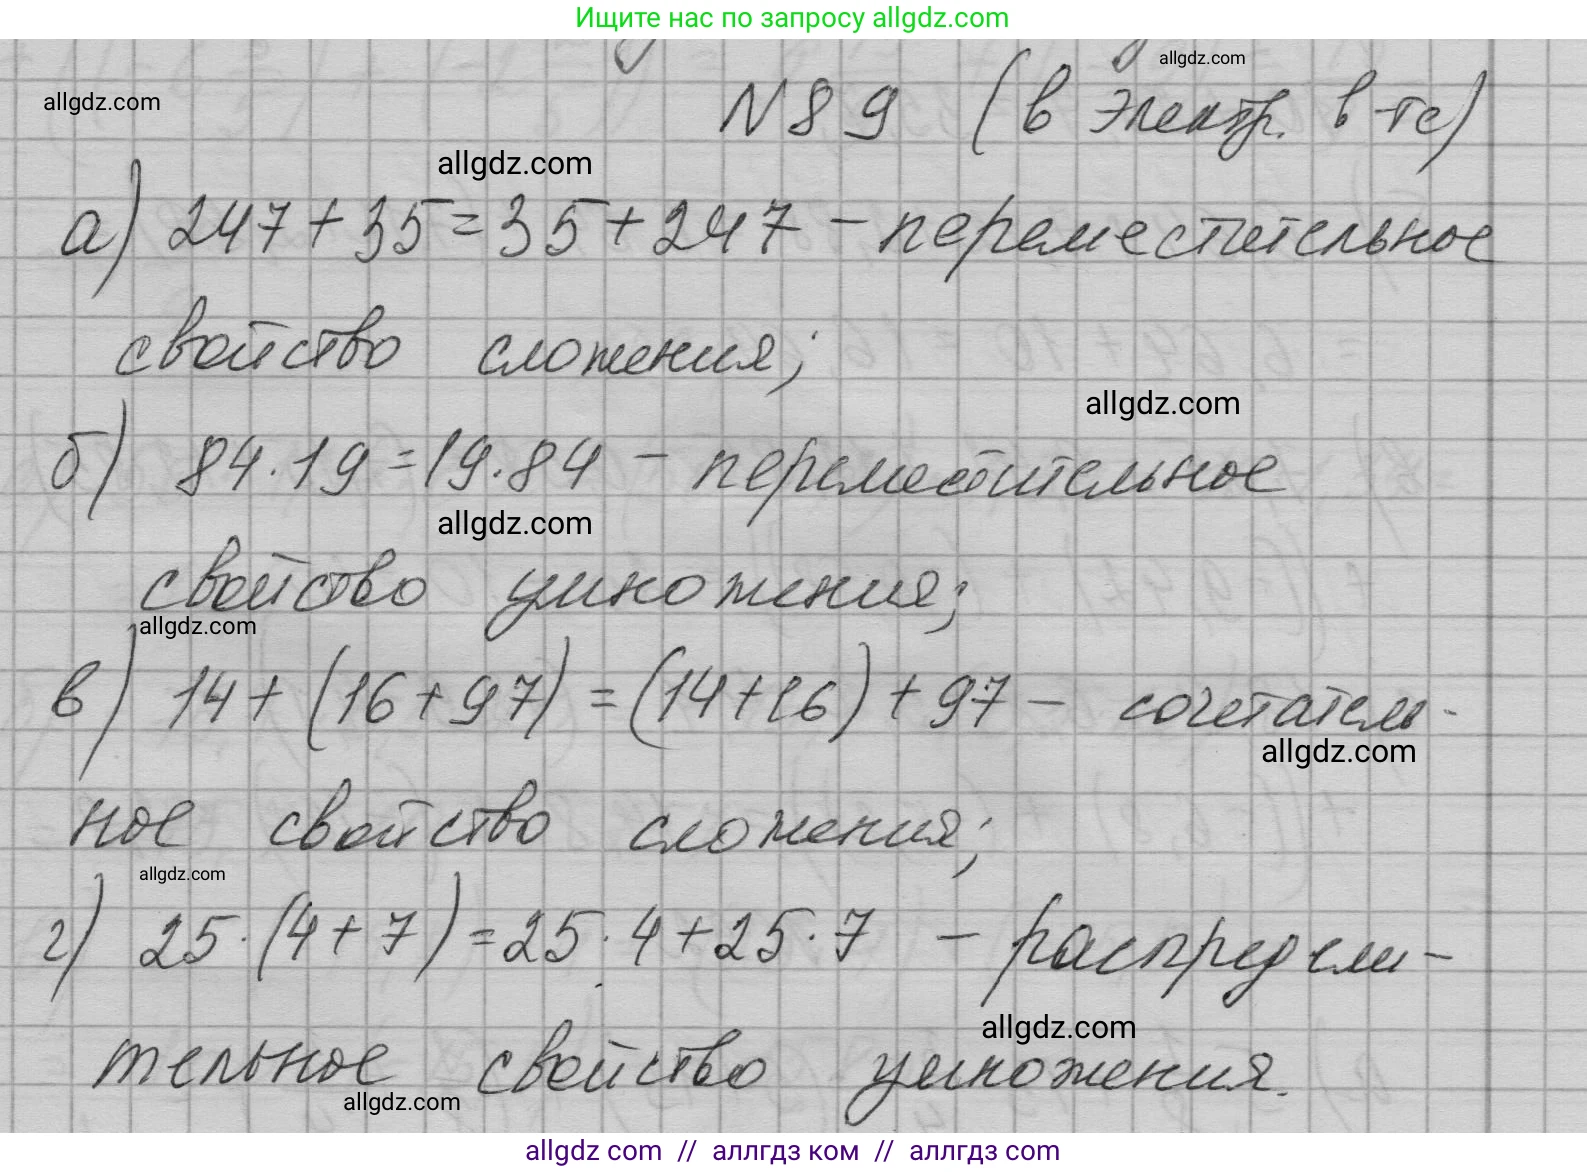 Ищите нас по запросу allgdz.com
allgdz.com
allgdz.com
N89 (в электр. в-те)
allgdz.com
а) 247+35=35+247 - переместительное
свойство сложения;
allgdz.com
б) 84·19=19·84 - переместительное
allgdz.com
свойство умножения;
allgdz.com
в) 14+(16+97)=(14+16)+97 - сочетатель-
allgdz.com
ное свойство сложения;
allgdz.com
г) 25·(4+7)=25·4+25·7 - распредели-
allgdz.com
тельное свойство умножения.
allgdz.com
allgdz com // аллгдз ком // аллгдз com